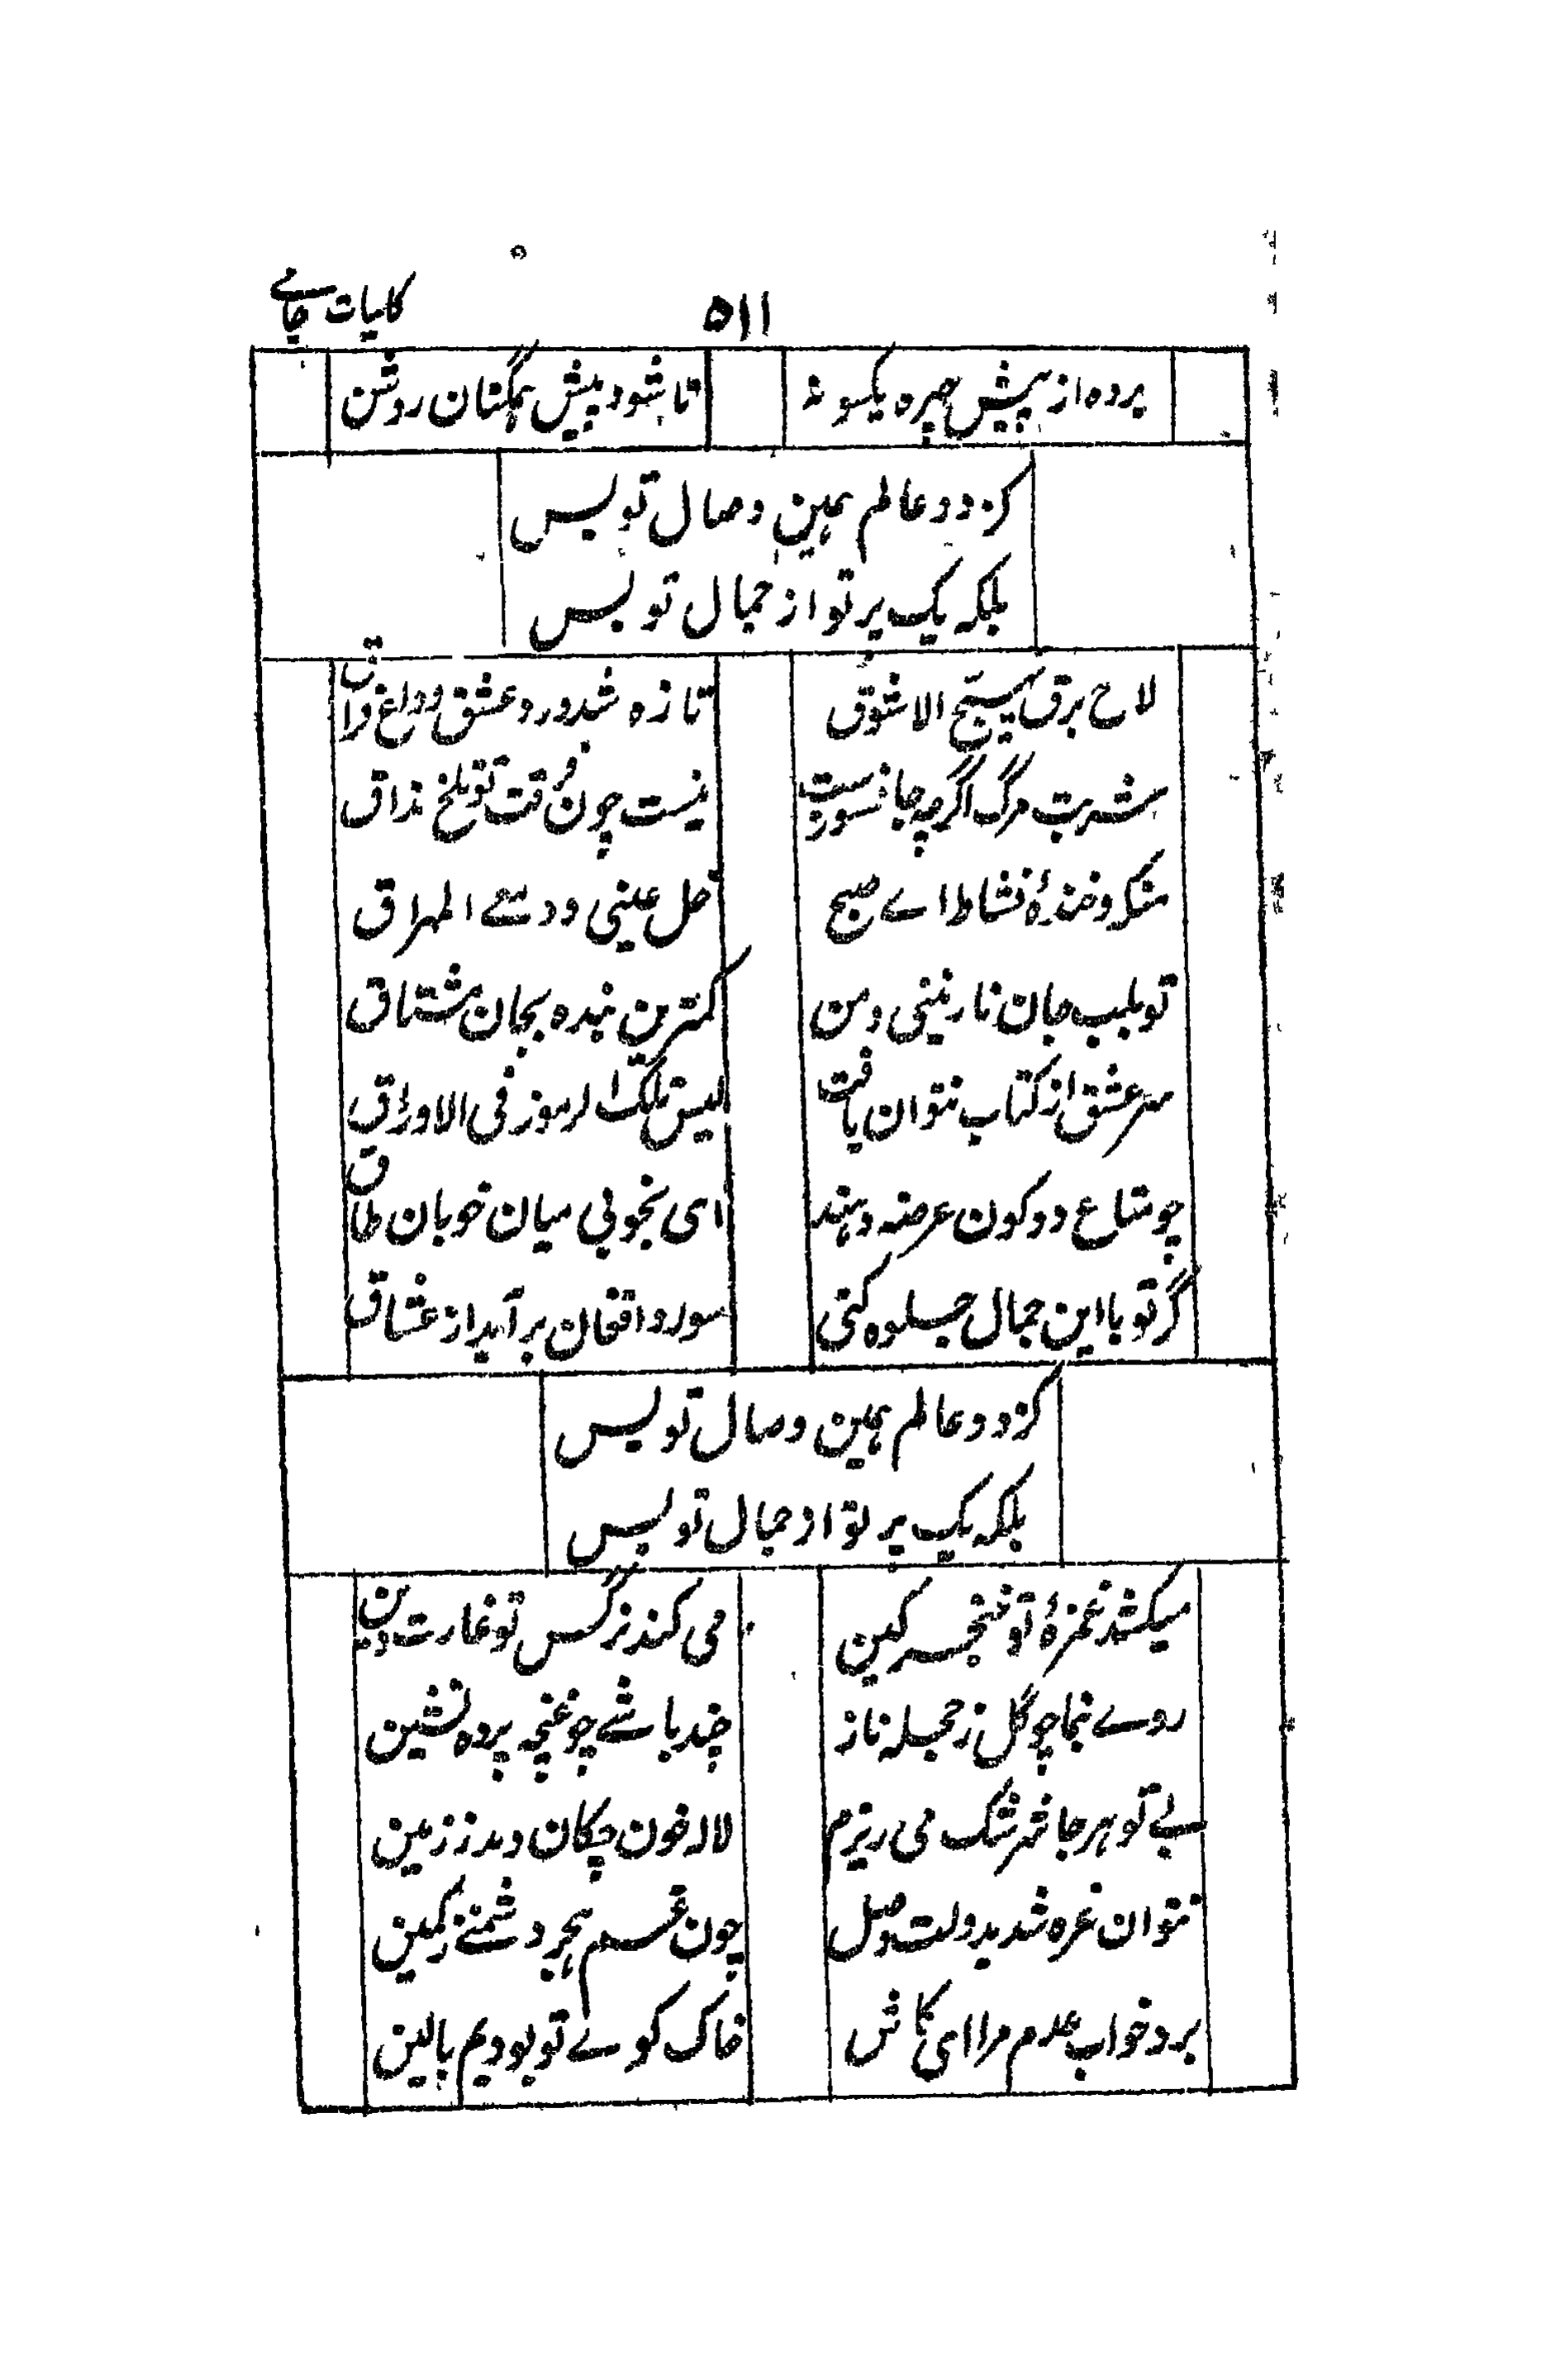 کلیات جامے
۵۱۱
پرده از پیش چهره یکسو نه
تا شود پیش همگنان روشن
کز دو عالم همین وصال تو بس
بلکه یک پرتو از جمال تو بس
لاح برق یهیج الاشواق
تازه شد درد عشق و داغ فراق
شربت مرگ اگرچه جانسوزست
نیست چون فرقت تو تلخ مذاق
منکر و خندهٔ نشاط اے صبح
خل عینی و دمعے المهراق
تو بلب جان نازنینی و من
کمترین بنده بجان مشتاق
سر عشق از کتاب نتوان یافت
لیس تلک الرموز فی الاوراق
چو متاع دو کون عرضه دهند
ای بخوبی میان خوبان طاق
گر تو با این جمال جلوه کنی
سورد افغان بر آید از عشاق
کز دو عالم همین وصال تو بس
بلکه یک پرتو از جمال تو بس
میکشد غمزهٔ تو خنجر کین
می کند نرگس تو غارت دین
روے بنما چو گل ز حجله ناز
چند باشے چو غنچه پرده نشین
بے تو هر جا سرشک می ریزم
لاله خون چکان دمد ز زمین
نتوان غره شد بدولت وصل
چون غم هجر دشمنے ز کمین
برد خواب عدم مرا ای کاش
خاک کوے تو بودیم بالین